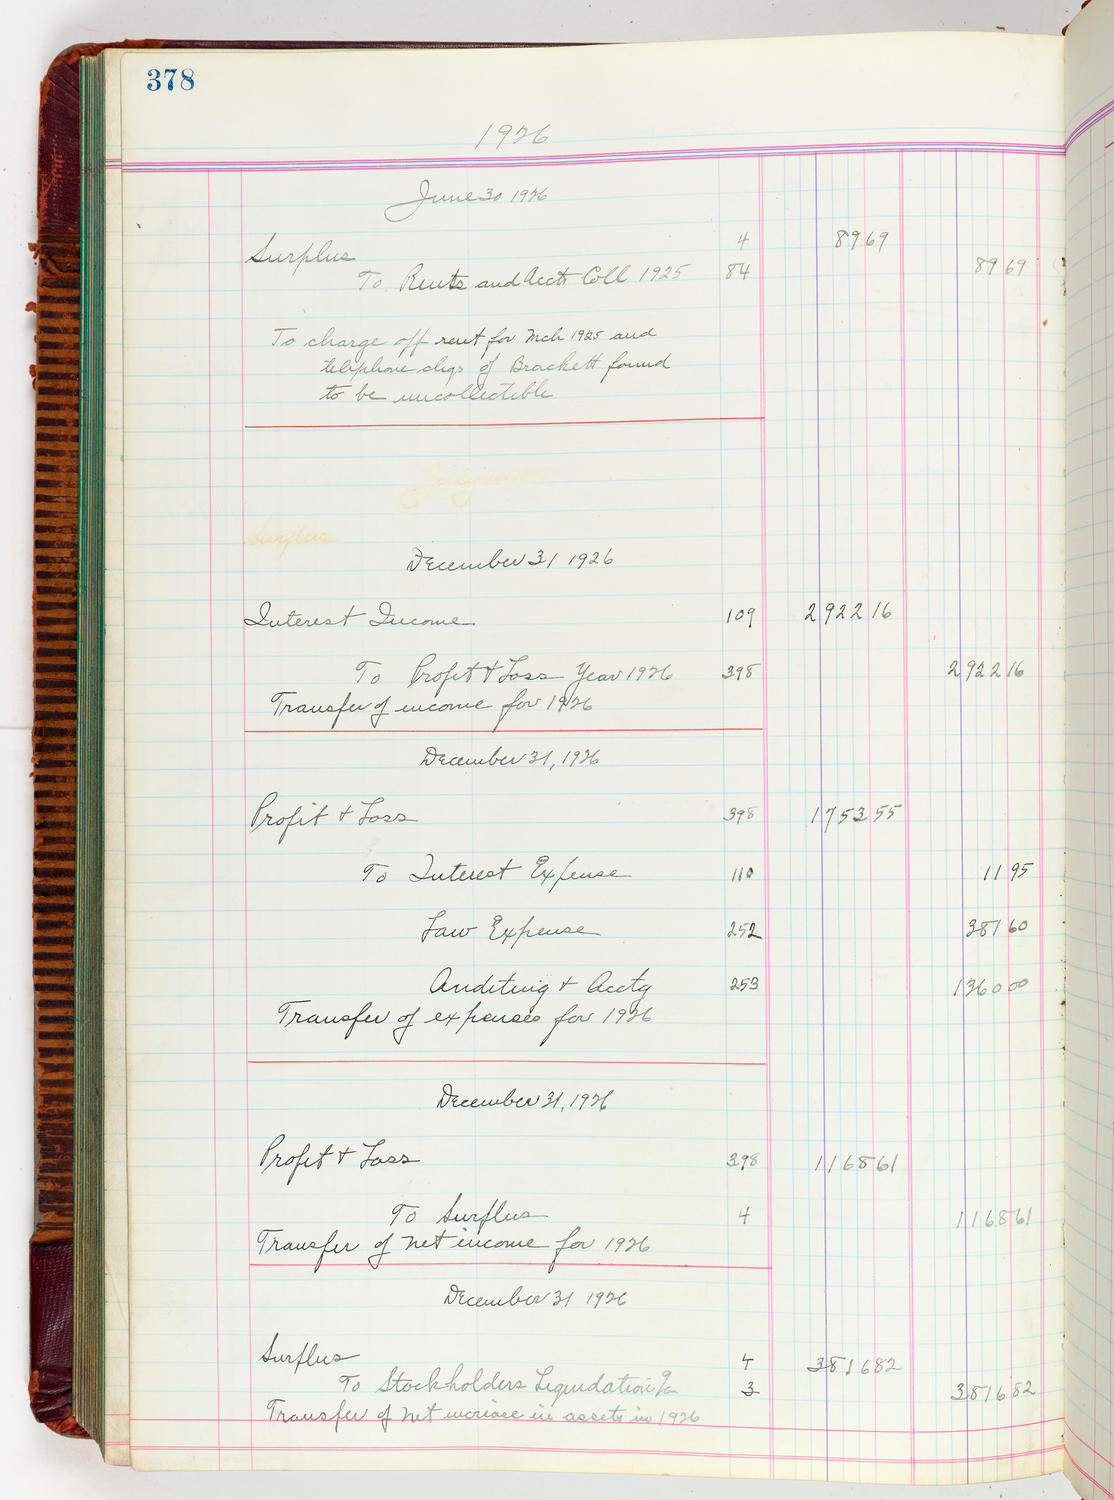 378
1926
June 30 1926
Surplus 4 89 69
To Rents and Acct Coll 1925 84 89 69
To charge off rent for Mch 1925 and
telephone chgs of Brackett found
to be uncollectible
Surplus
December 31 1926
Interest Income 109 2922 16
To Profit & Loss Year 1926 398 2922 16
Transfer of income for 1926
December 31, 1926
Profit & Loss 398 1753 55
To Interest Expense 110 11 95
Law Expense 252 381 60
Auditing & Acctg 253 1360 00
Transfer of expenses for 1926
December 31, 1926
Profit & Loss 398 1168 61
To Surplus 4 1168 61
Transfer of net income for 1926
December 31 1926
Surplus 4 3816 82
To Stockholders Liquidation a/c 3 3816 82
Transfer of net increase in assets in 1926